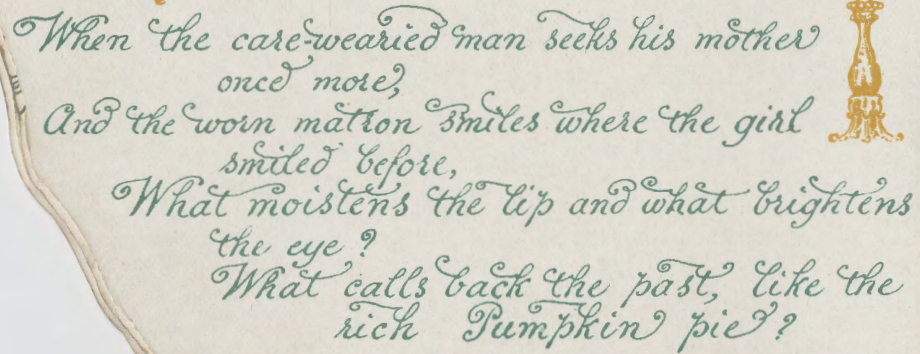 When the care-wearied man seeks his mother
once more,
And the worn matron smiles where the girl
smiled before,
What moistens the lip and what brightens
the eye?
What calls back the past, like the
rich Pumpkin pie?